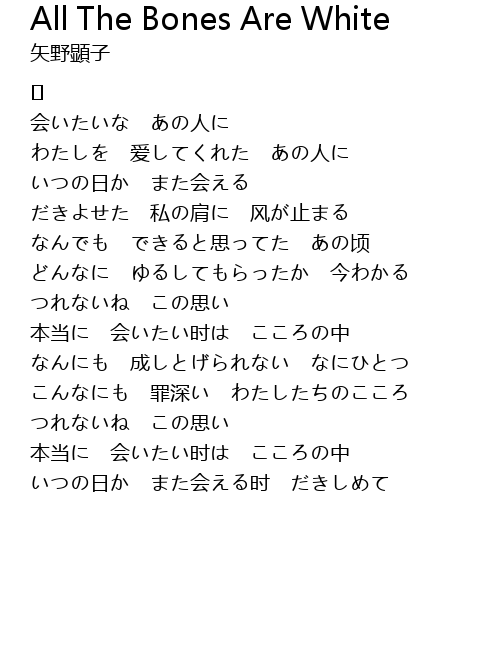 All The Bones Are White
矢野顕子
会いたいな　あの人に
わたしを　爱してくれた　あの人に
いつの日か　また会える
だきよせた　私の肩に　风が止まる
なんでも　できると思ってた　あの顷
どんなに　ゆるしてもらったか　今わかる
つれないね　この思い
本当に　会いたい时は　こころの中
なんにも　成しとげられない　なにひとつ
こんなにも　罪深い　わたしたちのこころ
つれないね　この思い
本当に　会いたい时は　こころの中
いつの日か　また会える时　だきしめて